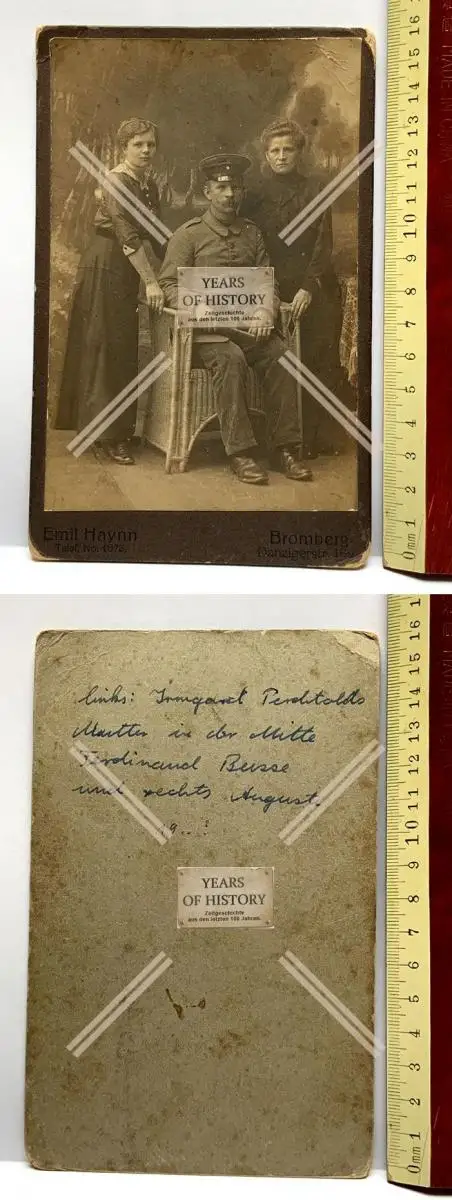 YEARS
OF HISTORY
Zeitgeschichte
aus den letzten 100 Jahren.
Emil Haynn
Bromberg.
Danzigerstr.
0mm 1 2 3 4 5 6 7 8 9 10 11 12 13 14 15 16
links: Irmgard
Mutter in der Mitte
Ferdinand Busse
und rechts August.
19..?
YEARS
OF HISTORY
Zeitgeschichte
aus den letzten 100 Jahren.
0mm 1 2 3 4 5 6 7 8 9 10 11 12 13 14 15 16